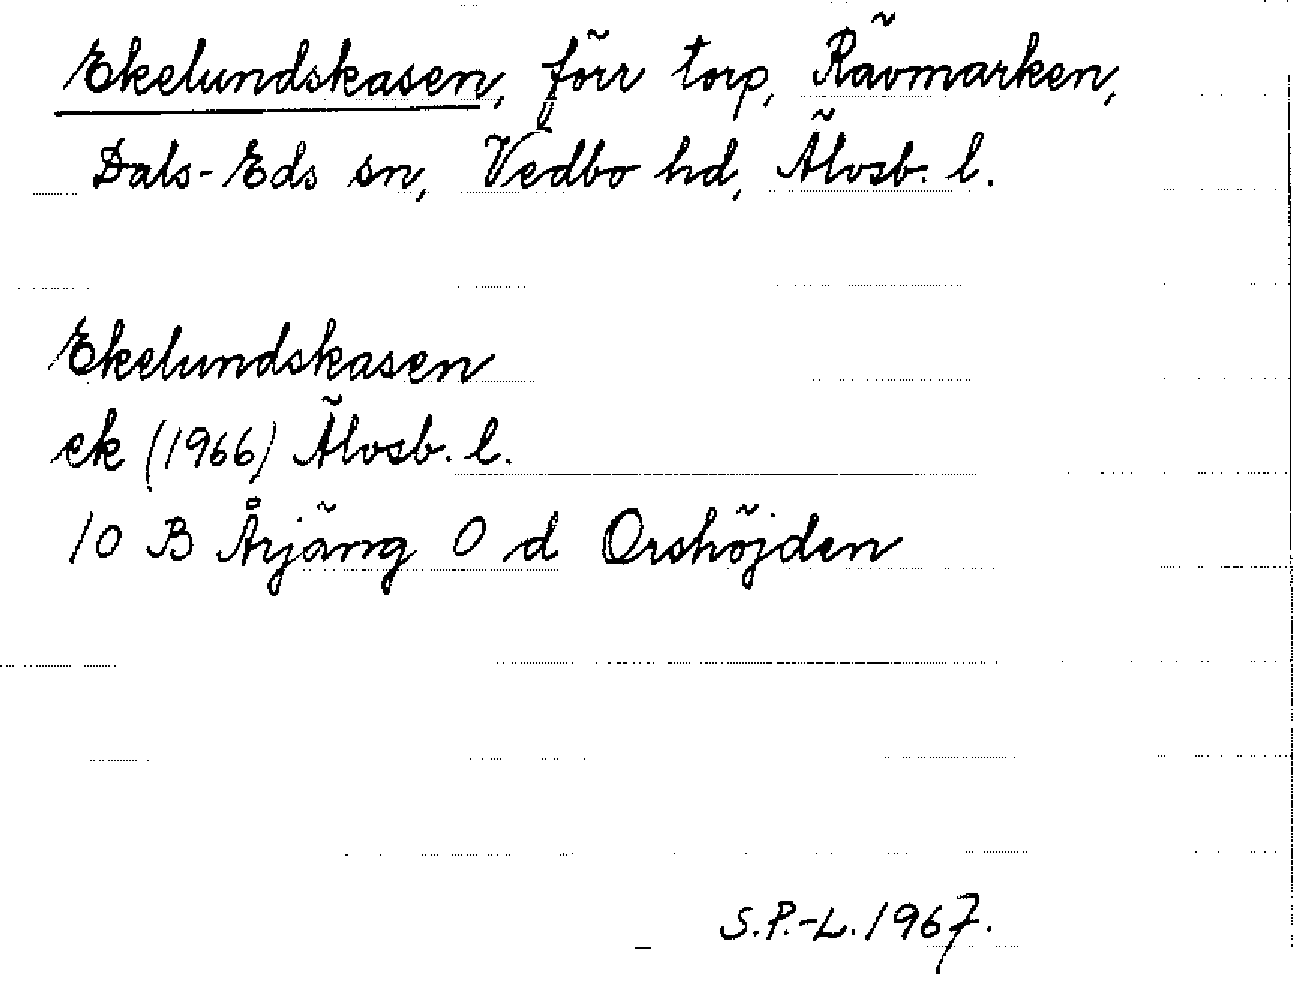 Ekelundskasen, förr torp, Rävmarken,
Dals-Eds sn, Vedbo hd, Älvsb. l.
Ekelundskasen
ek (1966) Älvsb. l.
10 B Årjäng 0 d Orshöjden
S.P.-L. 1967.